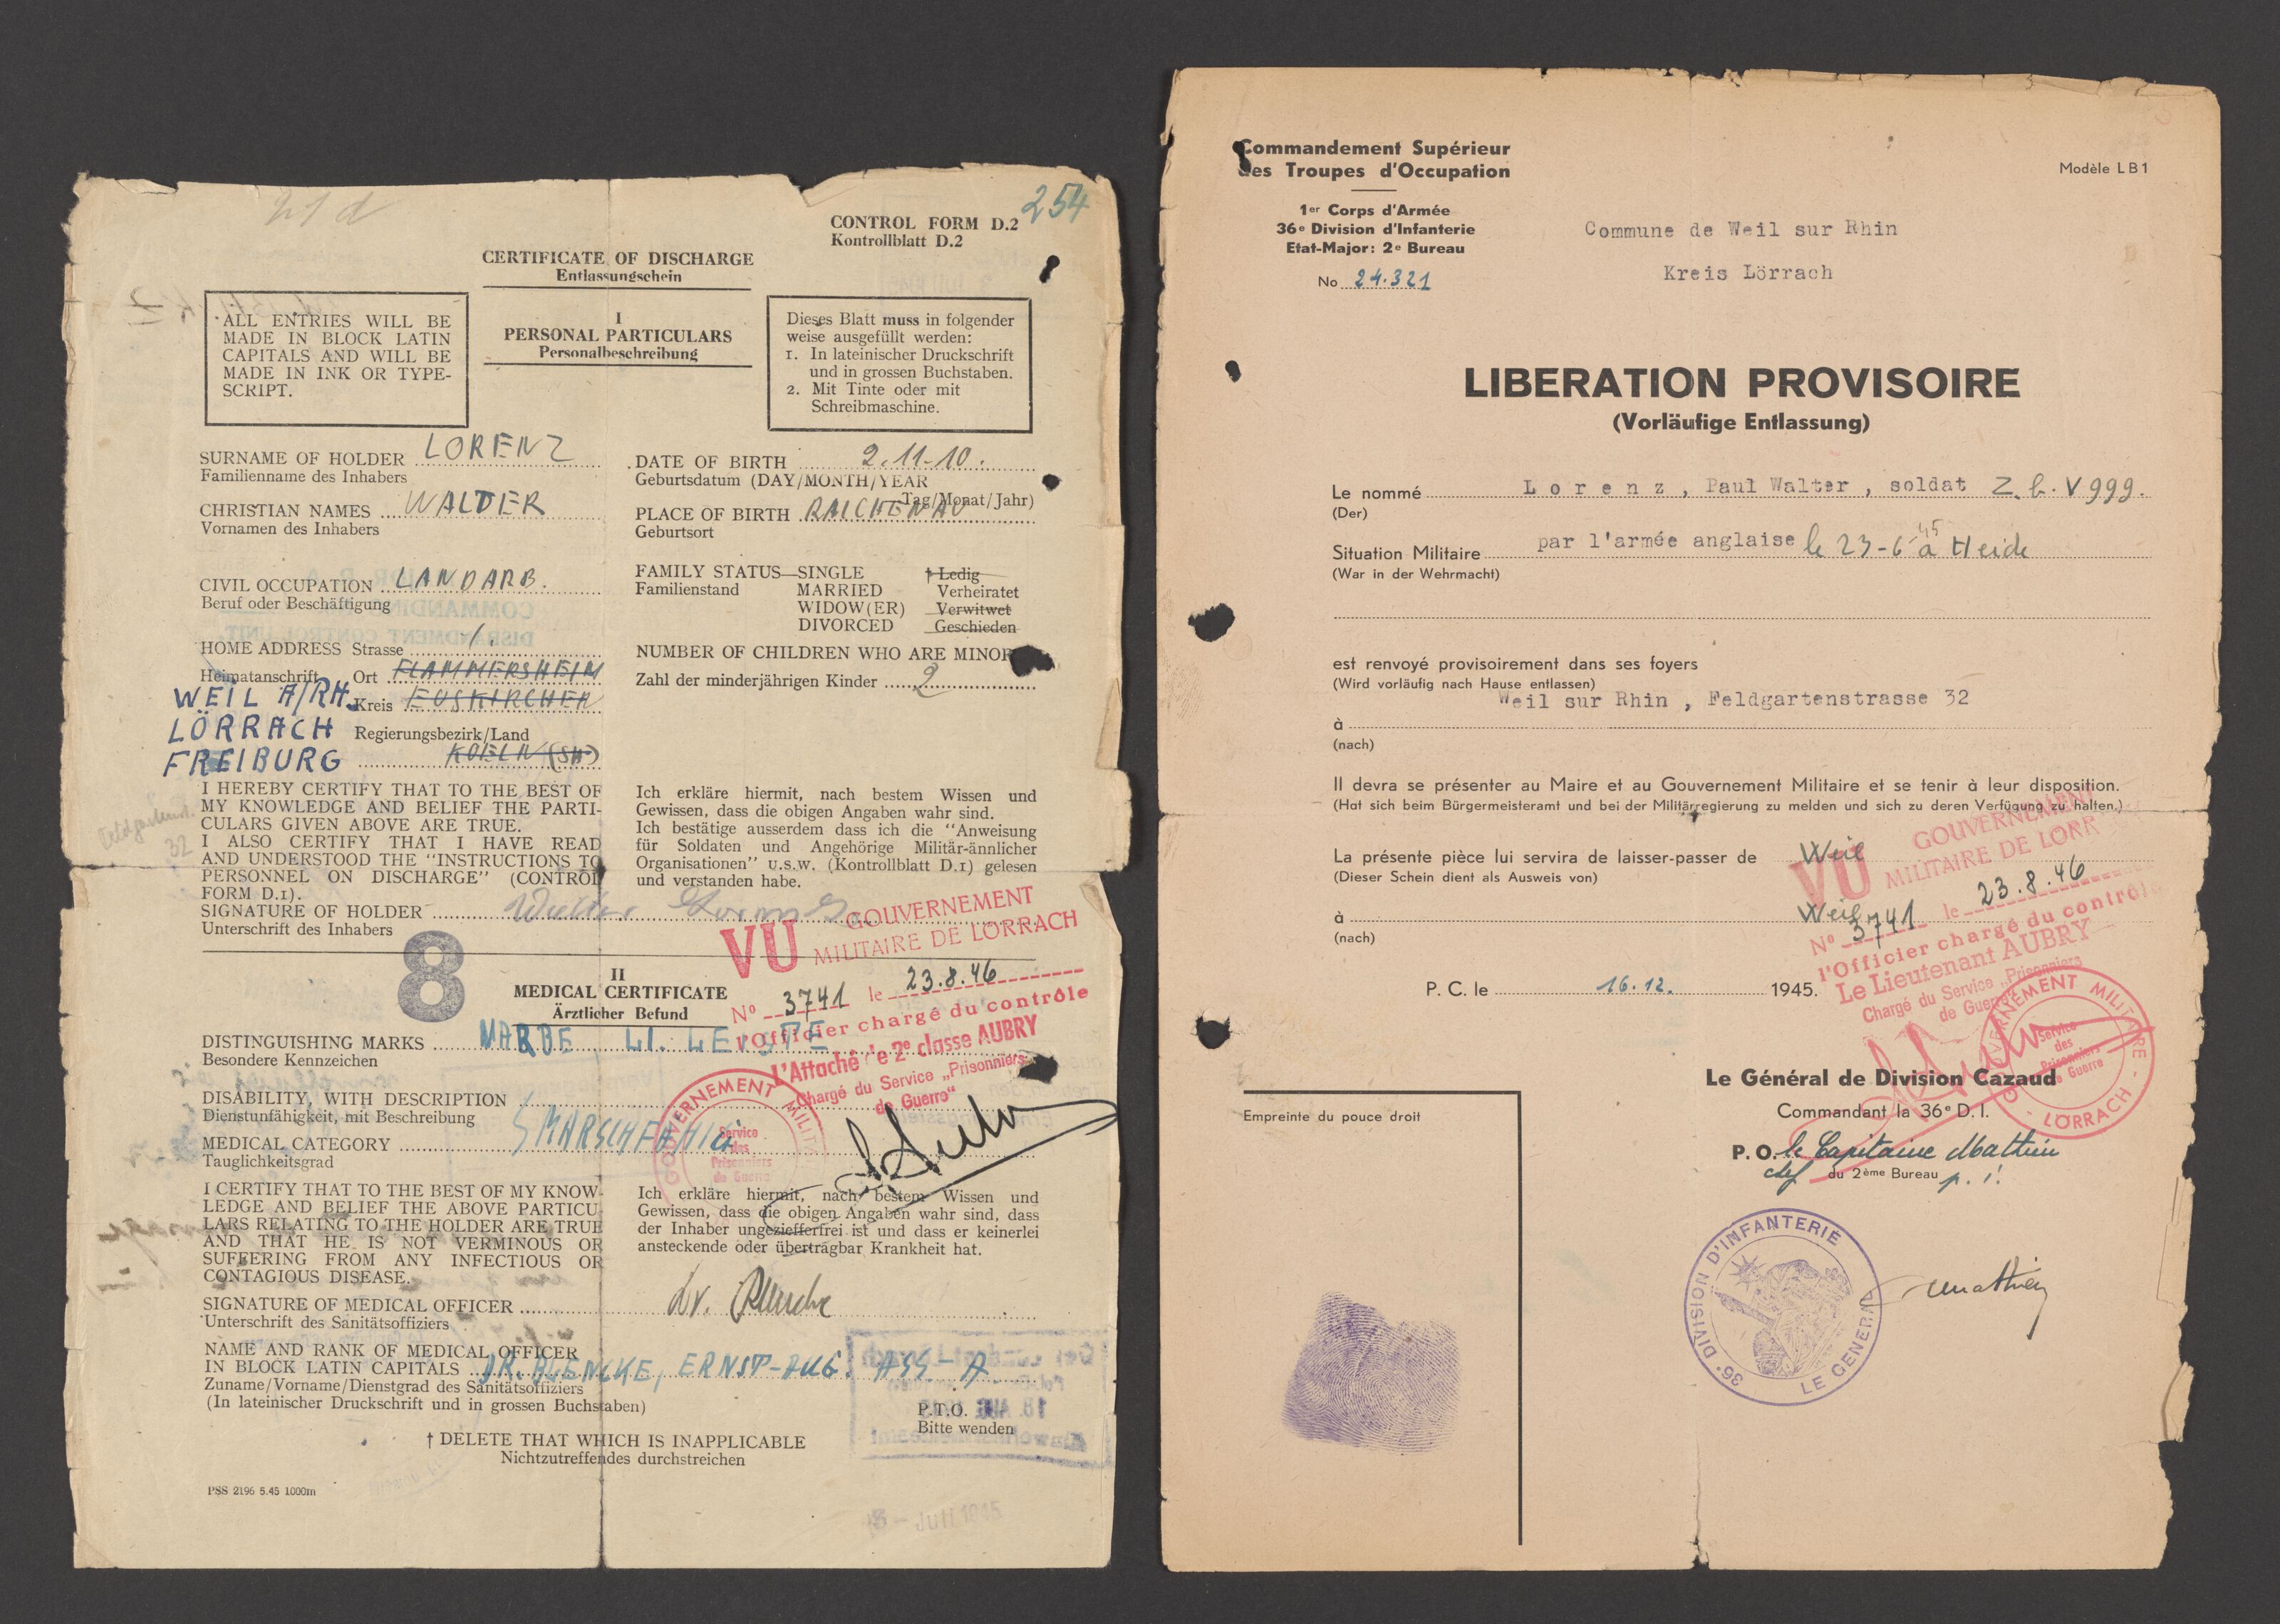 21 d
254
CONTROL FORM D.2
Kontrollblatt D.2
CERTIFICATE OF DISCHARGE
Entlassungschein
ALL ENTRIES WILL BE
MADE IN BLOCK LATIN
CAPITALS AND WILL BE
MADE IN INK OR TYPE-
SCRIPT.
I
PERSONAL PARTICULARS
Personalbeschreibung
Dieses Blatt muss in folgender
weise ausgefüllt werden:
1. In lateinischer Druckschrift
und in grossen Buchstaben.
2. Mit Tinte oder mit
Schreibmaschine.
SURNAME OF HOLDER LORENZ
Familienname des Inhabers
CHRISTIAN NAMES WALDER
Vornamen des Inhabers
CIVIL OCCUPATION LANDARB.
Beruf oder Beschäftigung
HOME ADDRESS Strasse
Heimatanschrift Ort FLAMMERSHEIM
WEIL A/RH. Kreis EUSKIRCHEN
LÖRRACH Regierungsbezirk/Land
FREIBURG KOELN (SH)
DATE OF BIRTH 2.11.10.
Geburtsdatum (DAY/MONTH/YEAR
Tag/Monat/Jahr)
PLACE OF BIRTH RAICHENAU
Geburtsort
FAMILY STATUS—SINGLE † Ledig
Familienstand MARRIED Verheiratet
WIDOW(ER) Verwitwet
DIVORCED Geschieden
NUMBER OF CHILDREN WHO ARE MINOR
Zahl der minderjährigen Kinder 2
I HEREBY CERTIFY THAT TO THE BEST OF
MY KNOWLEDGE AND BELIEF THE PARTI-
CULARS GIVEN ABOVE ARE TRUE.
I ALSO CERTIFY THAT I HAVE READ
AND UNDERSTOOD THE "INSTRUCTIONS TO
PERSONNEL ON DISCHARGE" (CONTROL
FORM D.1).
32
Ich erkläre hiermit, nach bestem Wissen und
Gewissen, dass die obigen Angaben wahr sind.
Ich bestätige ausserdem dass ich die "Anweisung
für Soldaten und Angehörige Militär-ännlicher
Organisationen" u.s.w. (Kontrollblatt D.1) gelesen
und verstanden habe.
SIGNATURE OF HOLDER Walter Lorenz
Unterschrift des Inhabers
8
VU GOUVERNEMENT
MILITAIRE DE LORRACH
No 3741 le 23.8.46
l'Officier chargé du contrôle
L'Attaché de 2e classe AUBRY
Chargé du Service „Prisonniers
de Guerre"
II
MEDICAL CERTIFICATE
Ärztlicher Befund
DISTINGUISHING MARKS NARBE LI. LEISTE
Besondere Kennzeichen
DISABILITY, WITH DESCRIPTION
Dienstunfähigkeit, mit Beschreibung
MEDICAL CATEGORY MARSCHFÄHIG
Tauglichkeitsgrad
GOUVERNEMENT MILIT
Service
des
Prisonniers
de Guerre
I CERTIFY THAT TO THE BEST OF MY KNOW-
LEDGE AND BELIEF THE ABOVE PARTICU-
LARS RELATING TO THE HOLDER ARE TRUE
AND THAT HE IS NOT VERMINOUS OR
SUFFERING FROM ANY INFECTIOUS OR
CONTAGIOUS DISEASE.
Ich erkläre hiermit, nach bestem Wissen und
Gewissen, dass die obigen Angaben wahr sind, dass
der Inhaber ungeziefferfrei ist und dass er keinerlei
ansteckende oder übertragbar Krankheit hat.
SIGNATURE OF MEDICAL OFFICER Dr.
Unterschrift des Sanitätsoffiziers
NAME AND RANK OF MEDICAL OFFICER
IN BLOCK LATIN CAPITALS DR. BLENCKE, ERNST-AUG. ASS-A
Zuname/Vorname/Dienstgrad des Sanitätsoffiziers
(In lateinischer Druckschrift und in grossen Buchstaben)
P.T.O.
Bitte wenden
† DELETE THAT WHICH IS INAPPLICABLE
Nichtzutreffendes durchstreichen
PSS 2196 5.45 1000m
Juli 1945
Commandement Supérieur
des Troupes d'Occupation
Modèle LB1
1er Corps d'Armée
36e Division d'Infanterie
Etat-Major: 2e Bureau
No 24.321
Commune de Weil sur Rhin
Kreis Lörrach
LIBERATION PROVISOIRE
(Vorläufige Entlassung)
Le nommé Lorenz, Paul Walter, soldat Z.b.V 999.
(Der)
Situation Militaire par l'armée anglaise le 23-6-45 à Heide
(War in der Wehrmacht)
est renvoyé provisoirement dans ses foyers
(Wird vorläufig nach Hause entlassen)
Weil sur Rhin, Feldgartenstrasse 32
à
(nach)
Il devra se présenter au Maire et au Gouvernement Militaire et se tenir à leur disposition.
(Hat sich beim Bürgermeisteramt und bei der Militärregierung zu melden und sich zu deren Verfügung zu halten.)
La présente pièce lui servira de laisser-passer de Weil
(Dieser Schein dient als Ausweis von)
à Weil
(nach)
VU GOUVERNEMENT
MILITAIRE DE LORR
No 3741 le 23.8.46
l'Officier chargé du contrôle
Le Lieutenant AUBRY
Chargé du Service „Prisonniers
de Guerre"
P. C. le 16.12. 1945.
GOUVERNEMENT MILITAIRE - LÖRRACH -
Service
des
Prisonniers
de Guerre
Le Général de Division Cazaud
Commandant la 36e D. I.
P. O. le Capitaine Mathieu
chef du 2ème Bureau p. i.
Empreinte du pouce droit
36e DIVISION D'INFANTERIE
LE GENERAL
Mathieu